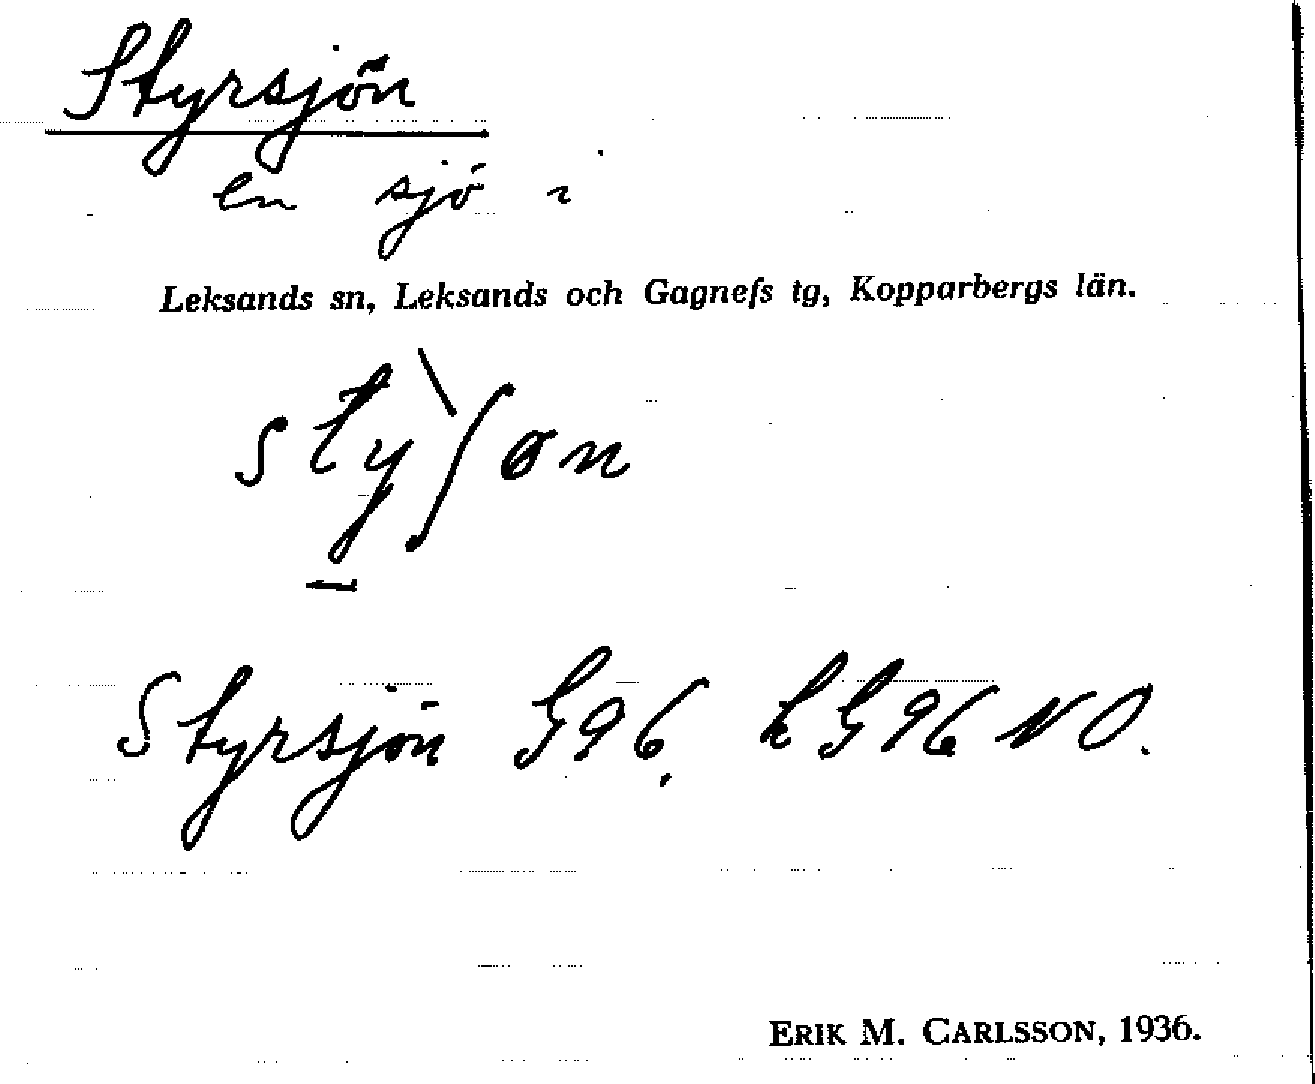 Styrsjön
en sjö i
Leksands sn, Leksands och Gagnefs tg, Kopparbergs län.
stỳ̠ʃøn
Styrsjön G96, LG96 NO.
ERIK M. CARLSSON, 1936.